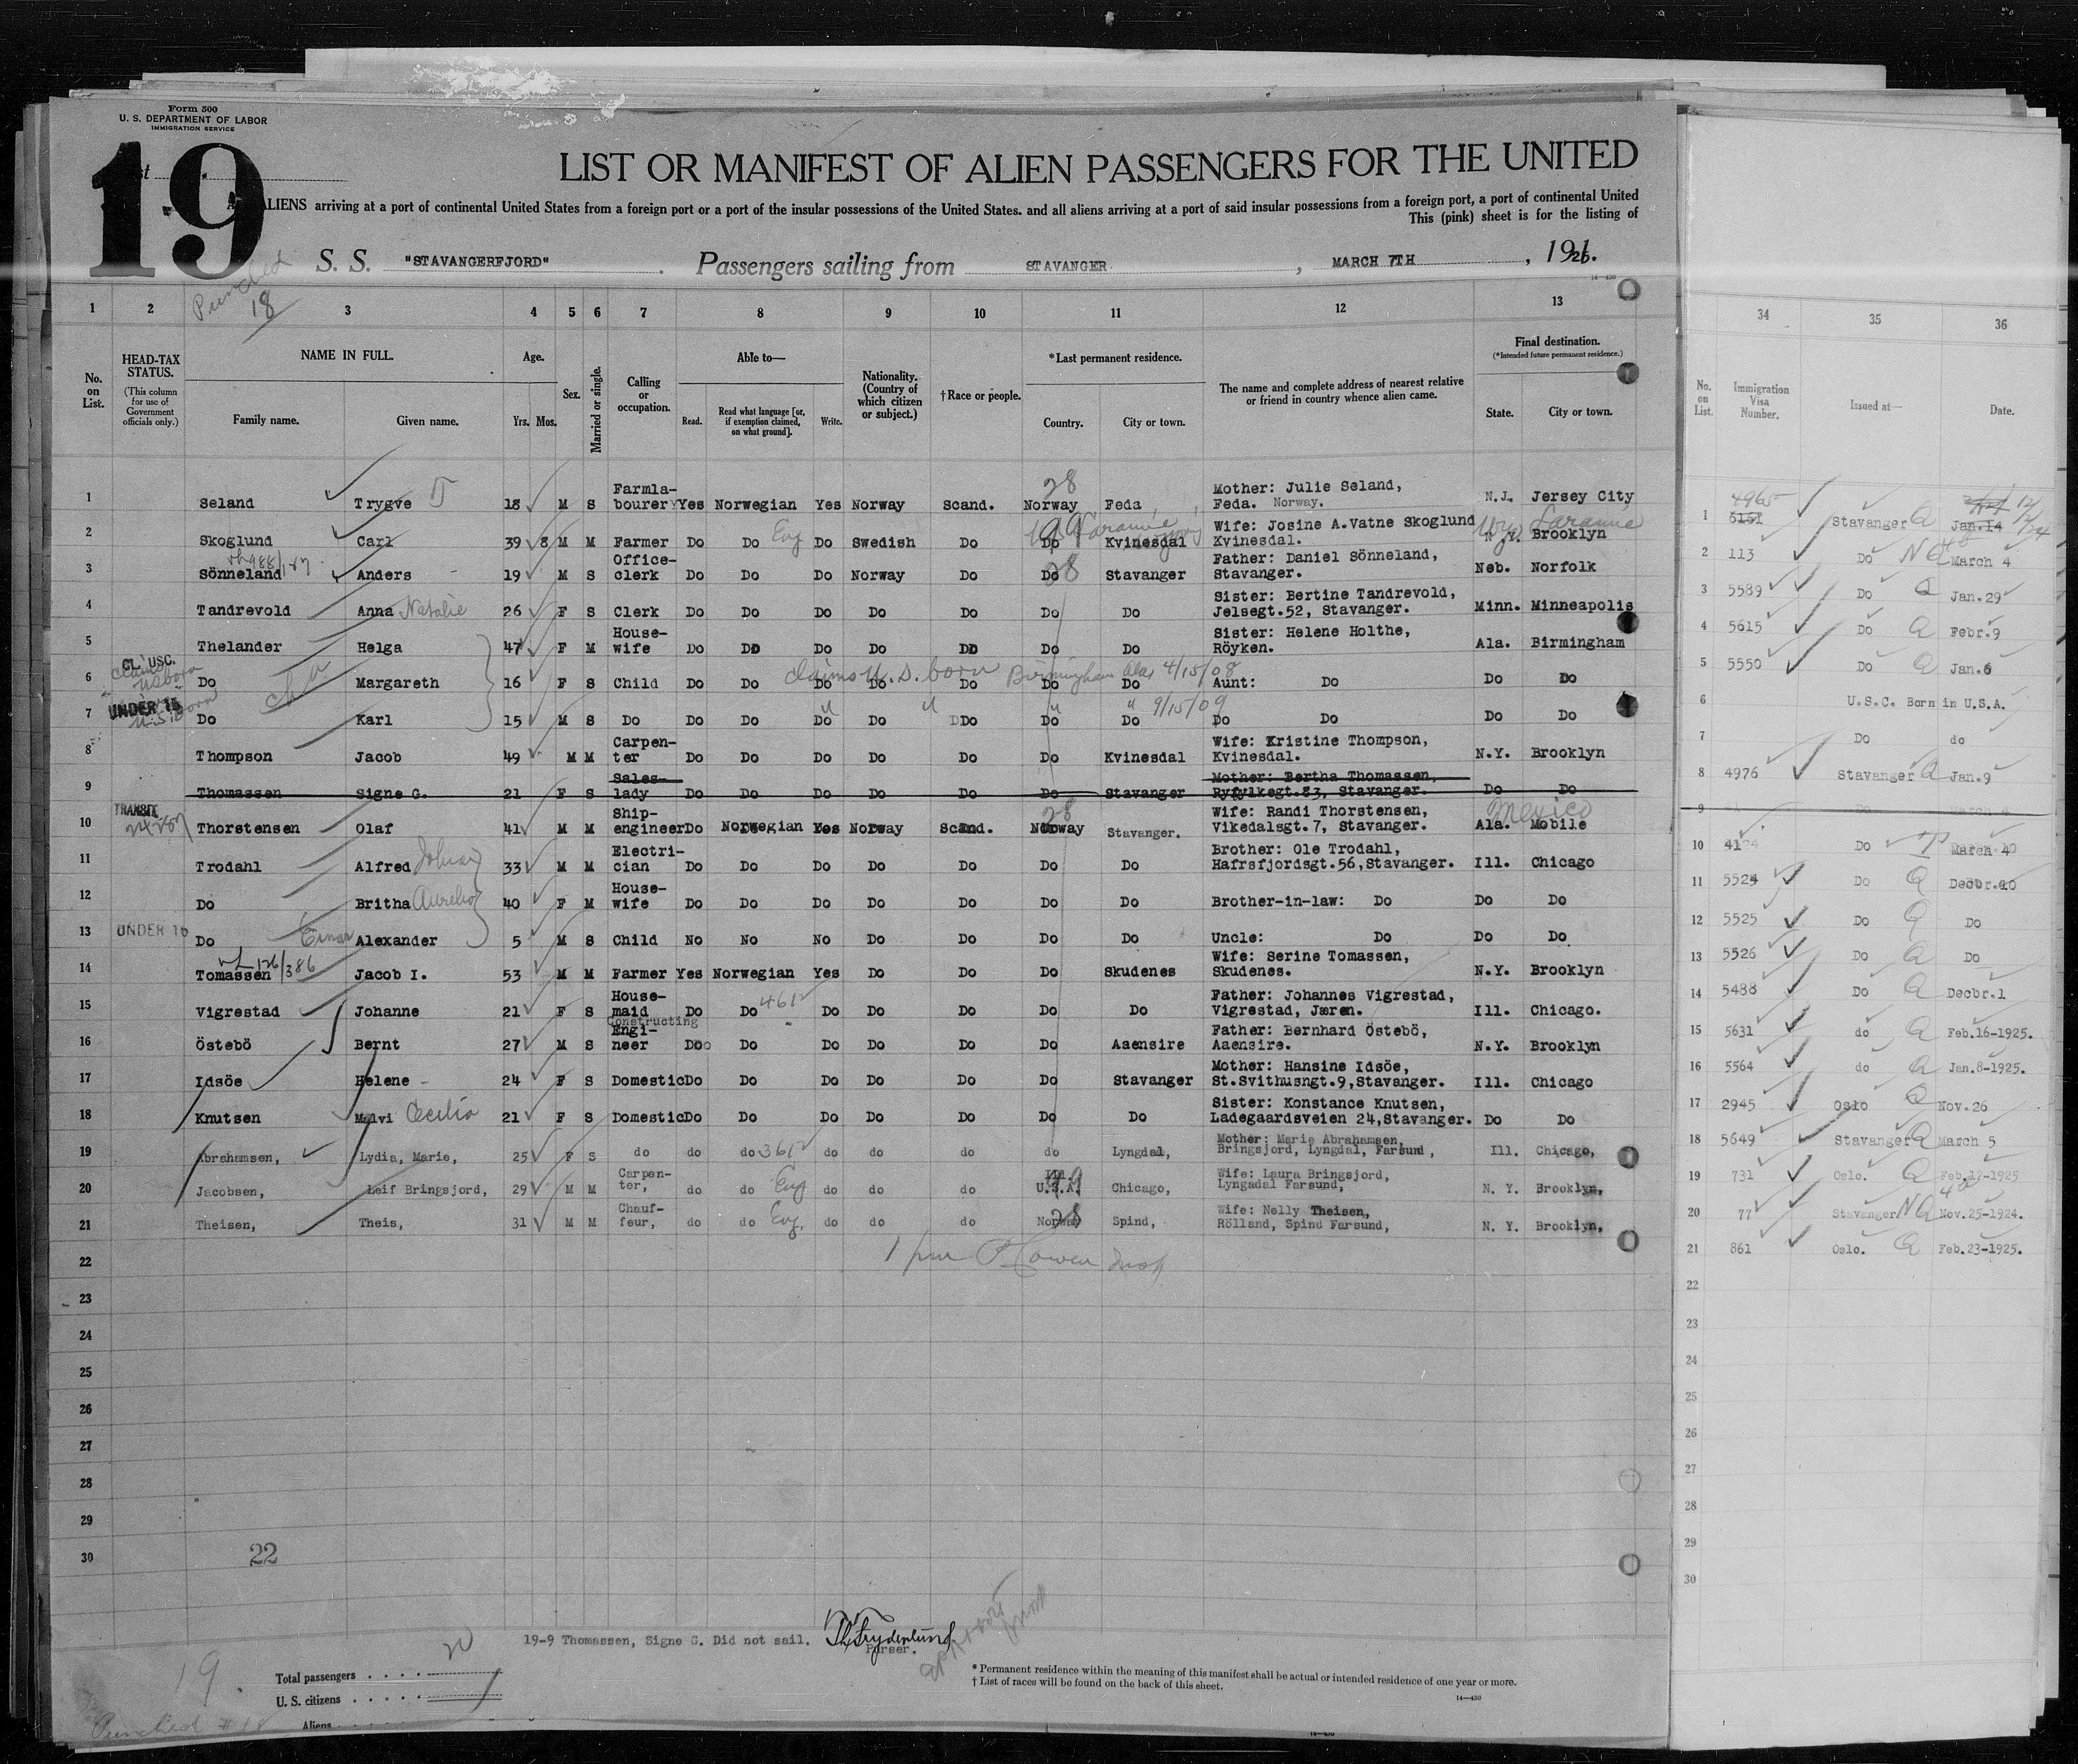 Form 500
U. S. DEPARTMENT OF LABOR
IMMIGRATION SERVICE
19
LIST OR MANIFEST OF ALIEN PASSENGERS FOR THE UNITED
ALIENS arriving at a port of continental United States from a foreign port or a port of the insular possessions of the United States, and all aliens arriving at a port of said insular possessions from a foreign port, a port of continental United
This (pink) sheet is for the listing of
S. S. "STAVANGERFJORD" Passengers sailing from STAVANGER, MARCH 7TH
Punched
18
1 2 3 4 5 6 7 8 9 10 11 12 13 34 35 36
No. on List. HEAD-TAX STATUS. (This column for use of Government officials only.) NAME IN FULL. Family name. Given name. Age. Yrs. Mos. Sex. Married or single. Calling or occupation. Able to— Read. Read what language [or, if exemption claimed, on what ground]. Write. Nationality. (Country of which citizen or subject.) †Race or people. *Last permanent residence. Country. City or town. The name and complete address of nearest relative or friend in country whence alien came. Final destination. (*Intended future permanent residence.) State. City or town.
No. on List. Immigration Visa Number. Issued at— Date.
1 Seland Trygve 18 M S Farmla-bourer Yes Norwegian Yes Norway Scand. Norway 28 Feda, Mother: Julie Seland, Feda. Norway. N.J. Jersey City
2 Skoglund Carl 39 8 M M Farmer Do Do Eng Do Swedish Do Do Kvinesdal Wife: Josine A.Vatne Skoglund Kvinesdal. Wyo Laramie Brooklyn
3 Sönneland Anders 19 M S Office-clerk Do Do Do Norway Do Do 28 Stavanger Father: Daniel Sönneland, Stavanger. Neb. Norfolk
4 Tandrevold Anna Natalie 26 F S Clerk Do Do Do Do Do Do Do Sister: Bertine Tandrevold, Jelsegt.52, Stavanger. Minn. Minneapolis
5 Thelander Helga 47 F M House-wife Do Do Do Do Do Do Do Sister: Helene Holthe, Röyken. Ala. Birmingham
6 CL. USC. Do Margareth 16 F S Child Do Do Do Do Do Do Do Aunt: Do Do Do
claims U.S. born Birmingham Ala 4/15/08
7 UNDER 16 U.S. Born Do Karl 15 M S Do Do Do Do Do Do Do Do Do Do Do Do
" " " " 9/15/09
8 Thompson Jacob 49 M M Carpen-ter Do Do Do Do Do Do Kvinesdal Wife: Kristine Thompson, Kvinesdal. N.Y. Brooklyn
9 Thomassen Signe G. 21 F S Sales-lady Do Do Do Do Do Do Stavanger Mother: Bertha Thomassen, Ryfylkegt.83, Stavanger. Do Do
10 TRANSIT Thorstensen Olaf 41 M M Ship-engineer Do Norwegian Yes Norway Scand. Norway 28 Stavanger. Wife: Randi Thorstensen, Vikedalsgt.7, Stavanger. Ala. Mobile Mexico
11 Trodahl Alfred 33 M M Electri-cian Do Do Do Do Do Do Do Brother: Ole Trodahl, Hafrsfjordsgt.56,Stavanger. Ill. Chicago
12 Do Britha 40 F M House-wife Do Do Do Do Do Do Do Brother-in-law: Do Do Do
13 UNDER 16 Do Einar Alexander 5 M S Child No No No Do Do Do Do Uncle: Do Do Do
14 Tomassen 126/386 Jacob I. 53 M M Farmer Yes Norwegian Yes Do Do Do Skudenes Wife: Serine Tomassen, Skudenes. N.Y. Brooklyn
15 Vigrestad Johanne 21 F S House-maid Do Do Do Do Do Do Do Father: Johannes Vigrestad, Vigrestad, Jæren. Ill. Chicago.
16 Östebö Bernt 27 M S Constructing Engi-neer Do Do Do Do Do Do Aaensire Father: Bernhard Östebö, Aaensire. N.Y. Brooklyn
17 Idsöe Helene 24 F S Domestic Do Do Do Do Do Do Stavanger Mother: Hansine Idsöe, St.Svithusngt.9,Stavanger. Ill. Chicago
18 Knutsen Malvi Cecilia 21 F S Domestic Do Do Do Do Do Do Do Sister: Konstance Knutsen, Ladegaardsveien 24,Stavanger. Do Do
19 Abrahamsen, Lydia, Marie, 25 F S do do do do do do do Lyngdal, Mother: Marie Abrahamsen, Bringsjord, Lyngdal, Farsund, Ill. Chicago,
20 Jacobsen, Leif Bringsjord, 29 M M Carpen-ter, do do Eng do do do U.S.A. Chicago, Wife: Laura Bringsjord, Lyngadal Farsund, N. Y. Brooklyn,
21 Theisen, Theis, 31 M M Chauf-feur, do do Eng. do do do Norway 28 Spind, Wife: Nelly Theisen, Rölland, Spind Farsund, N. Y. Brooklyn,
22
23
24
25
26
27
28
29
30 22
1 4965 6151 Stavanger Jan.14
2 113 Do March 4
3 5589 Do Jan.29
4 5615 Do Febr.9
5 5550 Do Jan.6
6 U.S.C. Born in U.S.A.
7 Do do
8 4976 Stavanger Jan.9
9 Do March 4
10 Do March
11 5524 Do Decbr.
12 5525 Do Do
13 5526 Do Do
14 5488 Do Decbr.1
15 5631 do Feb.16-1925.
16 5564 do Jan.8-1925.
17 2945 Oslo Nov.26
18 5649 Stavanger March 5
19 731 Oslo. 1925
20 77 Stavanger Nov.25-1924.
21 861 Oslo. Feb.23-1925.
22
23
24
25
26
27
28
29
30
19-9 Thomassen, Signe G. Did not sail.
Purser.
19
Total passengers 20
U. S. citizens
Aliens
* Permanent residence within the meaning of this manifest shall be actual or intended residence of one year or more.
† List of races will be found on the back of this sheet.
14—430